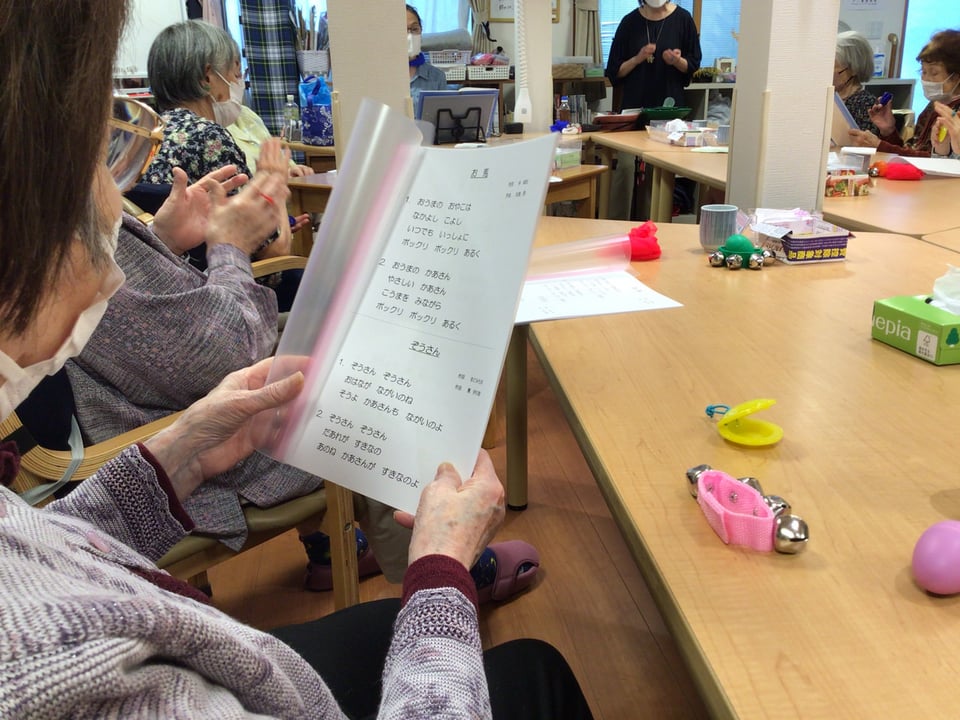 お馬
1. おうまの おやこは
なかよし こよし
いつでも いっしょに
ポックリ ポックリ あるく
2. おうまの かあさん
やさしい かあさん
こうまを みながら
ポックリ ポックリ あるく
ぞうさん
1. ぞうさん ぞうさん
おはなが ながいのね
そうよ かあさんも ながいのよ
2. ぞうさん ぞうさん
だあれが すきなの
あのね かあさんが すきなのよ
epia